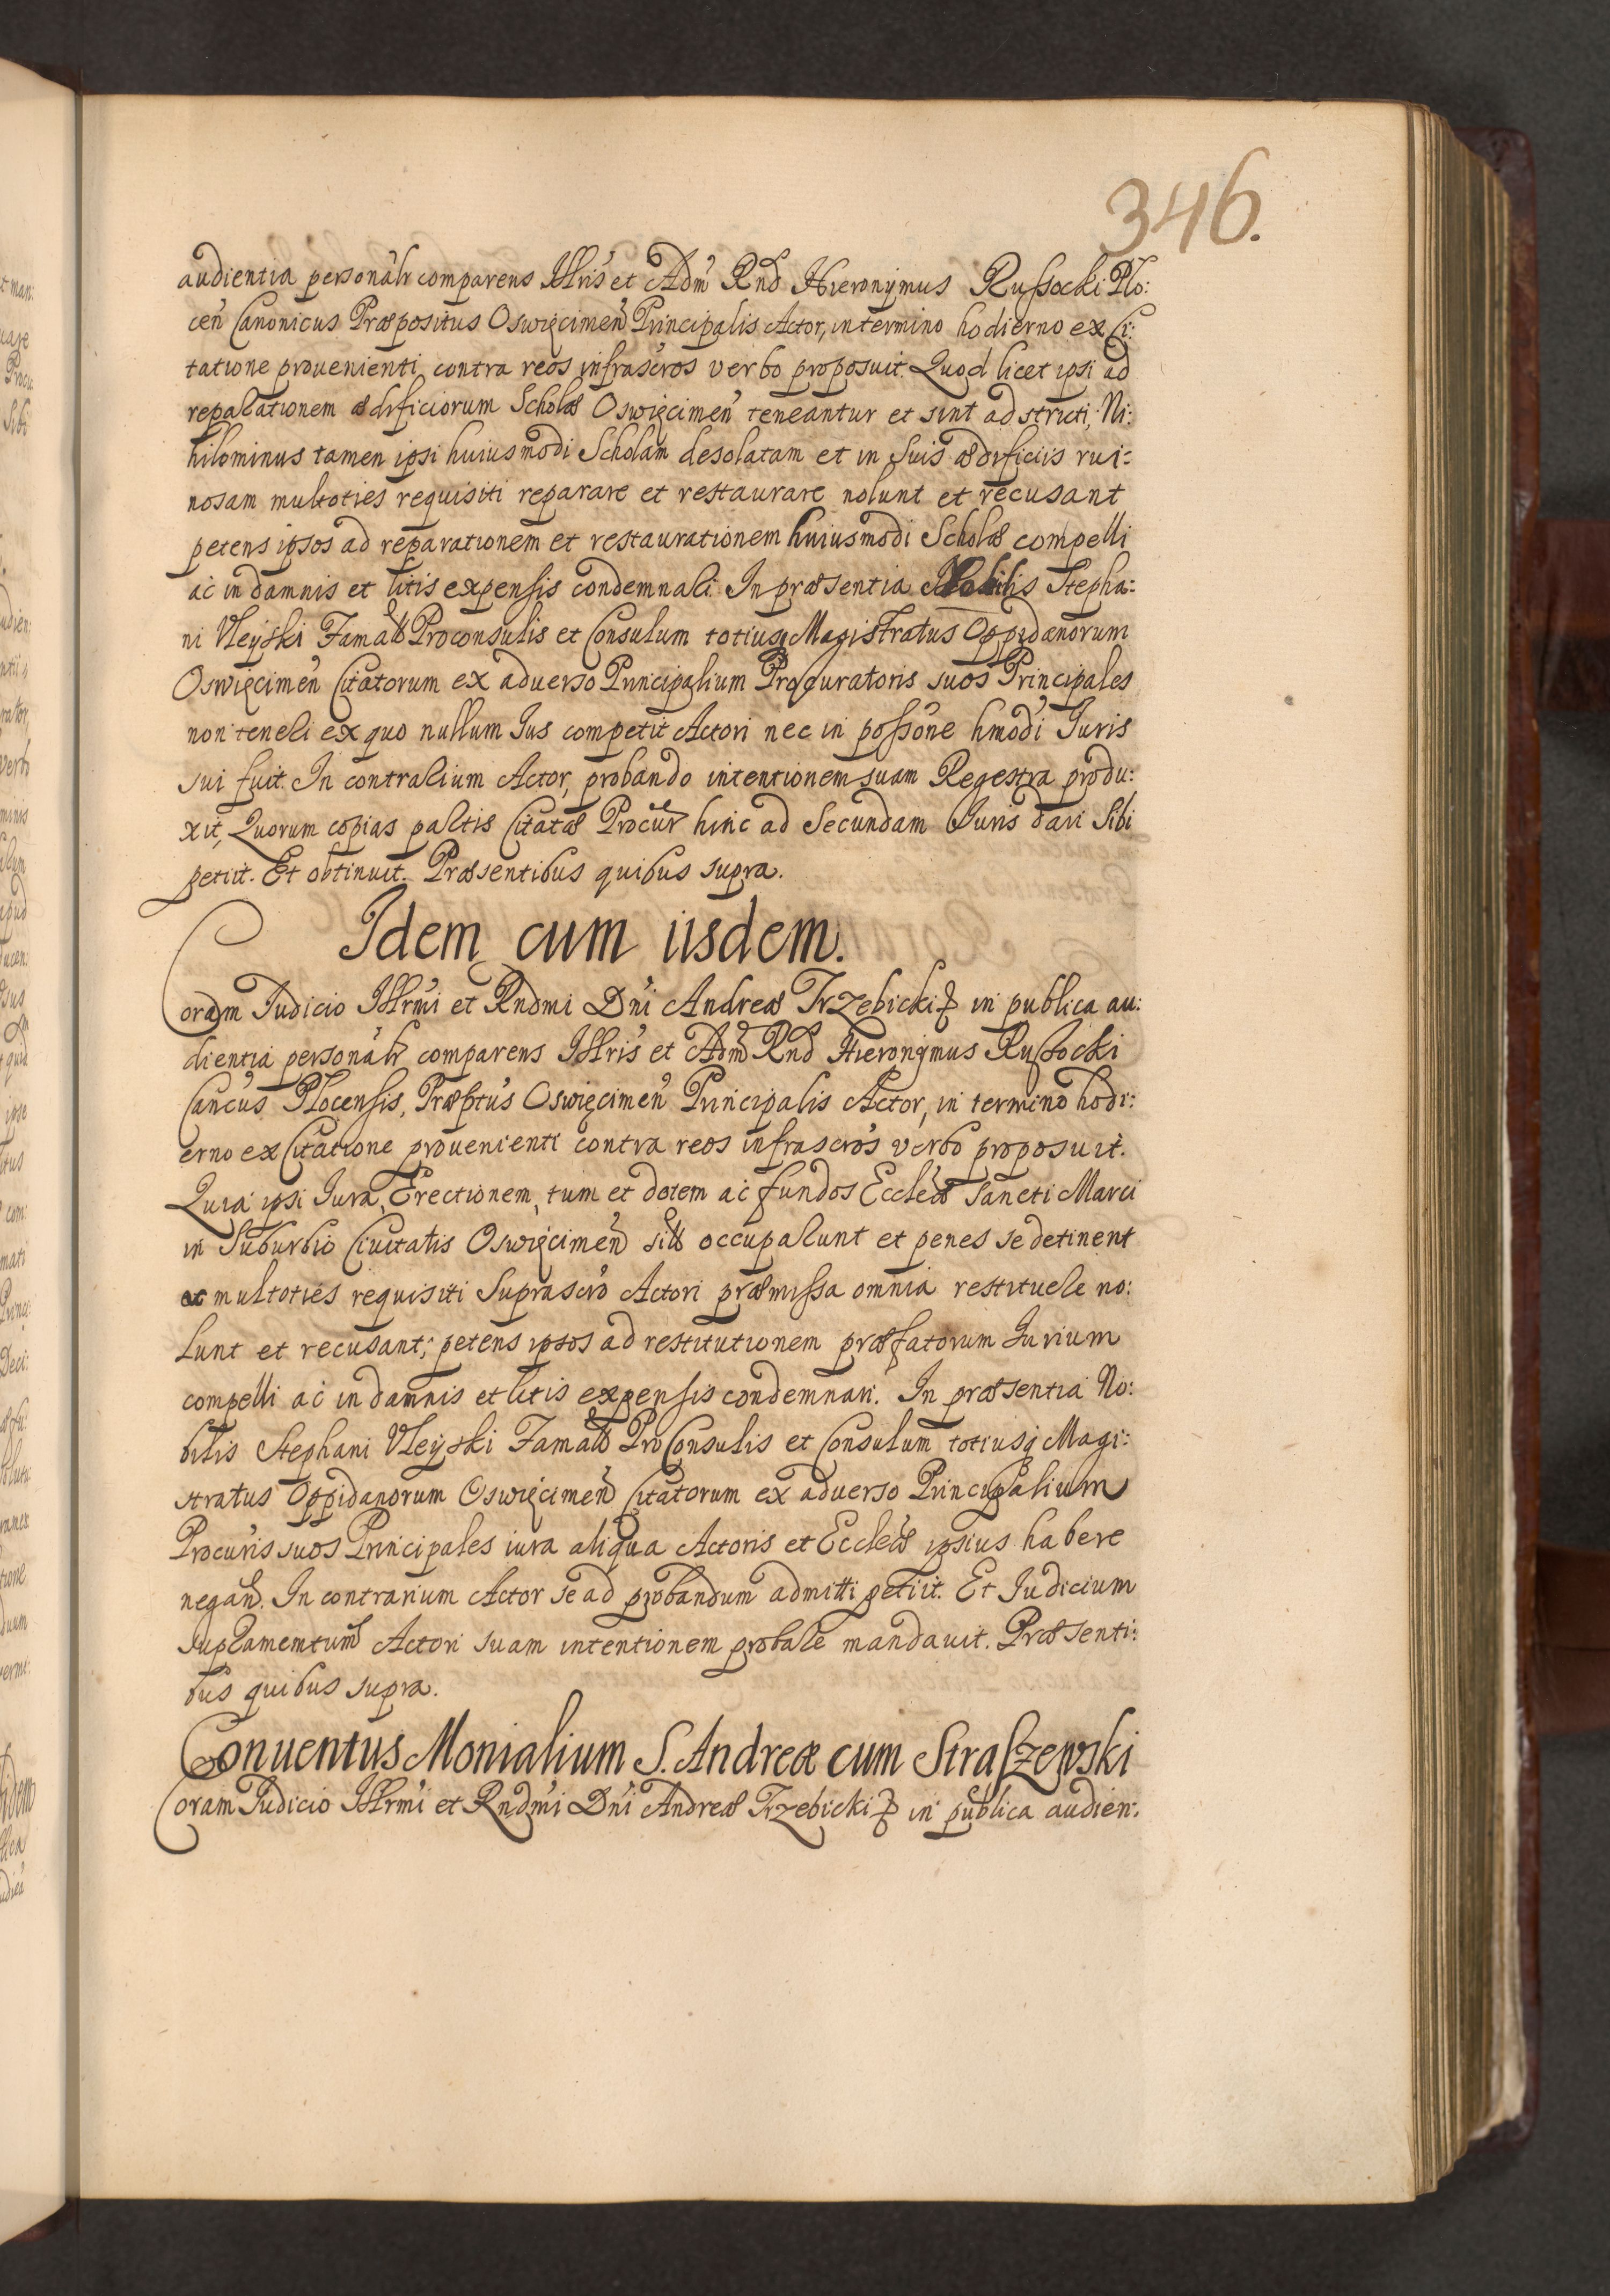 346.
audientia personálr comparens Illris et Adm Rnd Hieronymus Russocki Plo:
cen Canonicus Præpositus Oswięcimen Principalis Actor, in termino hodierno ex Ci:
tatione prouenienti contra reos infrascros verbo proposuit. Quod licet ipsi ad
reparationem ædificiorum Scholæ Oswięcimen teneantur et sint adstricti, Ni:
hilominus tamen ipsi huiusmodi Scholam desolatam et in suis ædificiis rui:
nosam multoties requisiti reparare et restaurare nolunt et recusant
petens ipsos ad reparationem et restaurationem huiusmodi Scholæ compelli
ac in damnis et litis expensis condemnari. In præsentia Nobilis Stepha:
ni Vleyski Famatt Proconsulis et Consulum totiusq Magistratus Oppidanorum
Oswięcimen Citatorum ex aduerso Principalium Procuratoris suos Principales
non teneri ex quo nullum Ius competit Actori nec in possone hmodi Iuris
sui fuit. In contrarium Actor, probando intentionem suam Regestra produ:
xit, Quorum copias partis Citatæ Procur hinc ad Secundam Iuris dari sibi
petiit. Et obtinuit. Præsentibus quibus supra.
Idem cum iisdem.
Coram Iudicio Illrmi et Rndmi Dni Andreæ Trzebicki in publica au:
dientia personálr comparens Illris et Adm Rnd Hieronymus Russocki
Cancus Plocensis, Præptus Oswięcimen Principalis Actor, in termino hodi:
erno ex Citatione prouenienti contra reos infrascros verbo proposuit.
Quia ipsi Iura, Erectionem, tum et dotem ac fundos Eccleæ Sancti Marci
in Suburbio Ciuitatis Oswięcimen sitt occuparunt et penes se detinent
et multoties requisiti suprascro Actori præmissa omnia restituere no:
lunt et recusant; petens ipsos ad restitutionem præfatorum Iurium
compelli ac in damnis et litis expensis condemnari. In præsentia No:
bilis Stephani Vleyski Famatt ProConsulis et Consulum totiusq Magi:
stratus Oppidanorum Oswięcimen Citatorum ex aduerso Principalium
Procuris suos Principales iura aliqua Actoris et Eccleæ ipsius habere
negan. In contrarium Actor se ad probandum admitti petiit. Et Iudicium
suplamentum Actori suam intentionem probare mandauit. Præsenti:
bus quibus supra.
Conuentus Monialium S. Andreæ cum Straszewski
Coram Iudicio Illrmi et Rndmi Dni Andreæ Trzebicki in publica audien: